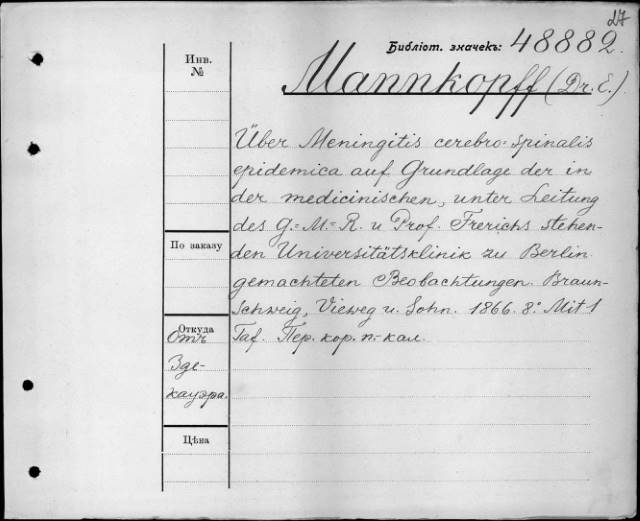 27
Библіот. значекъ: 48882.
Инв.
№
Mannkopff (Dr. E.)
Über Meningitis cerebro=spinalis
epidemica auf Grundlage der in
der medicinischen, unter Leitung
des G.=M.=R. u Prof. Frerichs stehen-
По заказу
den Universitätsklinik zu Berlin
gemachteten Beobachtungen. Braun-
schweig, Vieweg u. Sohn. 1866. 8.° Mit 1
Откуда
Taf. Пер. кор. п.- кал.
Отъ
Зде-
кауэра.
Цѣна